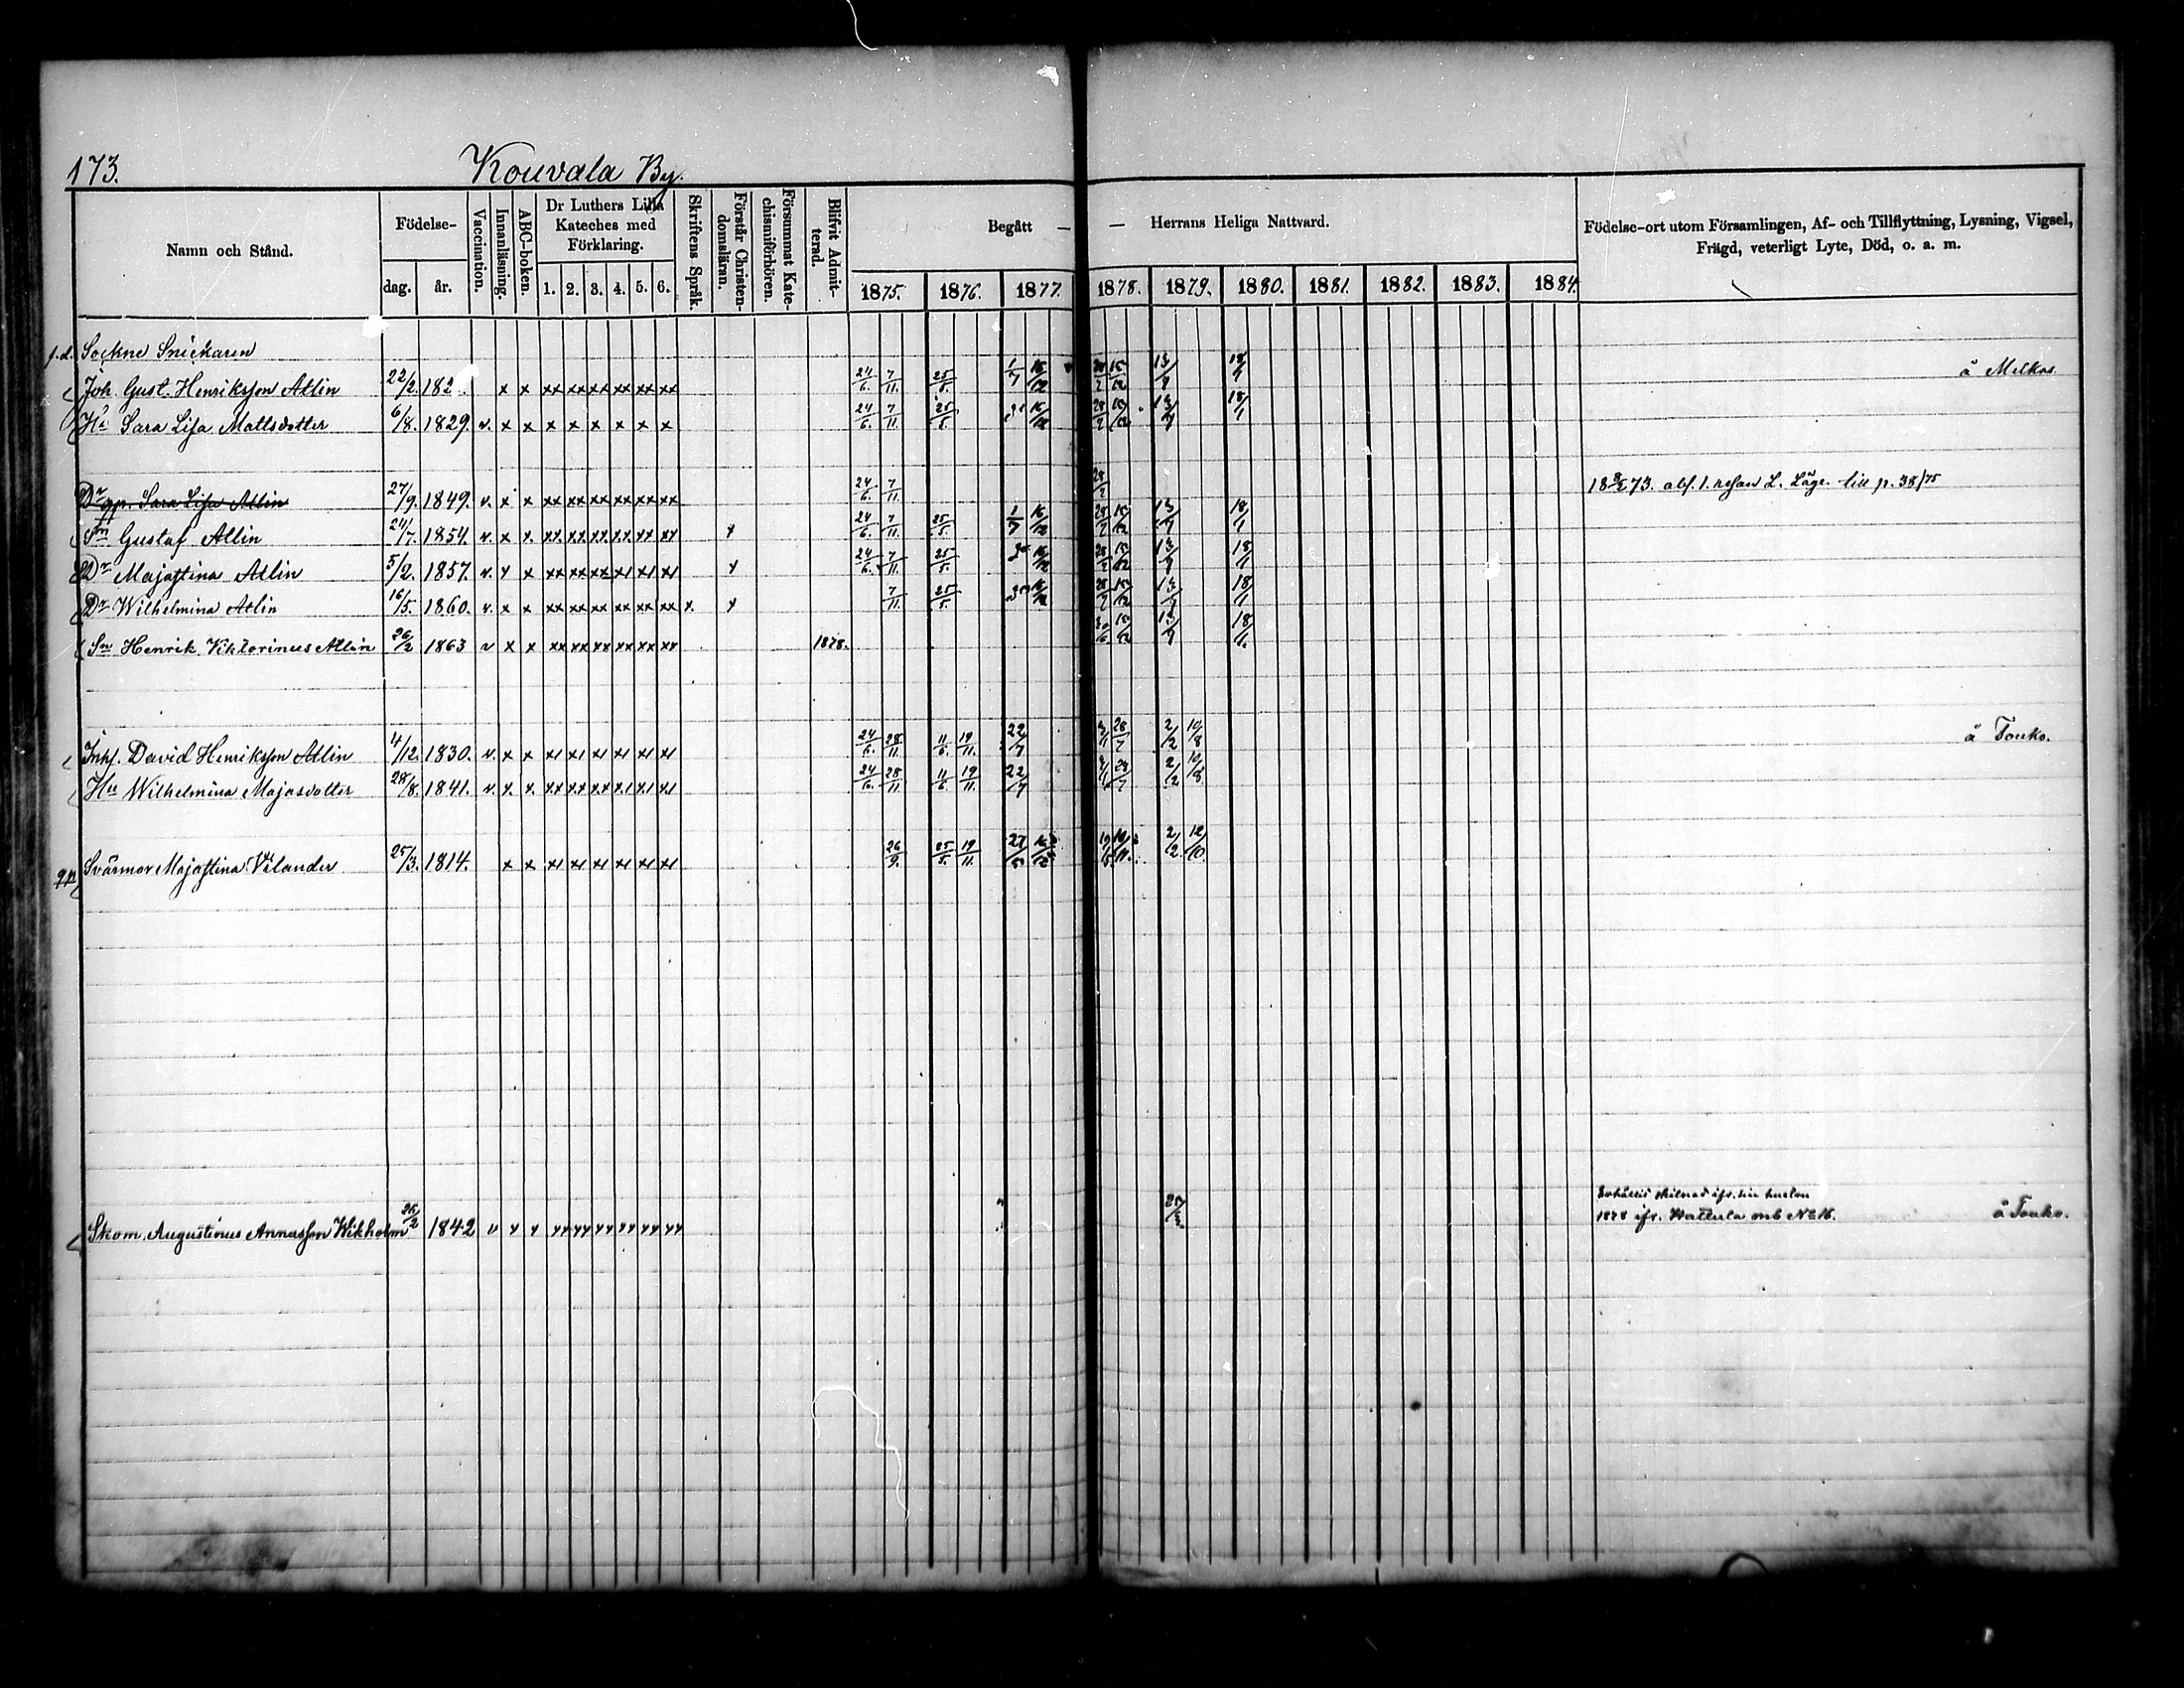 173. Kouvala By.
Namn och Stånd. Födelse- dag. år. Vaccination. Innanläsning. ABC-boken. Dr Luthers Lilla Kateches med Förklaring. 1. 2. 3. 4. 5. 6. Skriftens Språk. Förstår Christen-domsläran. Försummat Kate-chismiförhören. Blifvit Admit-terad. Begått — — Herrans Heliga Nattvard. Födelse-ort utom Församlingen, Af- och Tillflyttning, Lysning, Vigsel, Frägd, veterligt Lyte, Död, o. a. m.
1875. 1876. 1877. 1878. 1879. 1880. 1881. 1882. 1883. 1884.
f.d. Sockne Snickaren
Joh. Gust. Henriksson Atlin 22/2. 182 x x xx xx xx xx xx xx 24/6. 7/11. 25/5. 1/7 16/12 13/7 18/1 å Melkas
Hu Sara Lisa Mattsdotter 6/8. 1829. v. x x x x x x x x 24/6. 7/11. 25/5. 16/12 13/7 18/1
Dr qp. Sara Lisa Atlin 27/9. 1849. v. x x xx xx xx xx xx xx 24/6. 7/11. 28/7 73. abs. 1. resan L. Läge. till p. 38/75
Sn Gustaf Atlin 24/7. 1854. v. x x xx xx xx xx xx xx x 24/6. 7/11. 25/5. 1/7 16/12 28/7 15/12 13/7 18/1
Dr Majastina Atlin 5/2. 1857. v. x x xx xx xx xx xx xx x 24/6. 7/11. 25/5. 16/12 28/7 15/12 13/7 18/1
Dr Wilhelmina Atlin 16/5. 1860. v. x x xx xx xx xx xx xx x. x 7/11. 25/5. 16/12 28/7 15/12 13/7 18/1
Sn Henrik Viktorinus Atlin 26/2 1863 v x x xx xx xx xx xx xx 1878. 15/12 13/7 18/1.
Inhs. David Henriksson Atlin 4/12. 1830. v. x x xx xx xx xx xx xx 24/6. 28/11 11/6. 19/11. 22/7 28/7 2/2 10/8 å Touko.
Hu Wilhelmina Majasdotter 28/8. 1841. v. x x. xx xx xx xx xx xx 24/6. 28/11 11/6 19/11. 22/7 28/7 2/2 10/8
qp Svärmor Majastina Vilander 25/3. 1814. x x xx xx xx xx xx xx 26/9. 25/5. 19/11. 2/2. 12/10.
Skom. Augustinus Annasson Wikholm 26/2 1842 v x x xx xx xx xx xx xx
Erhållit skilnad ifr. sin hustru
1878 ifr. Hattula mb No 16. å Touko.